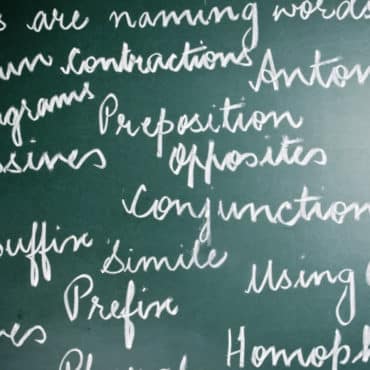 s are naming words
un Contractions Anton
grams Preposition
ssives Opposites
Conjunction
suffix Simile Using
Prefix
ves Homoph
Plural